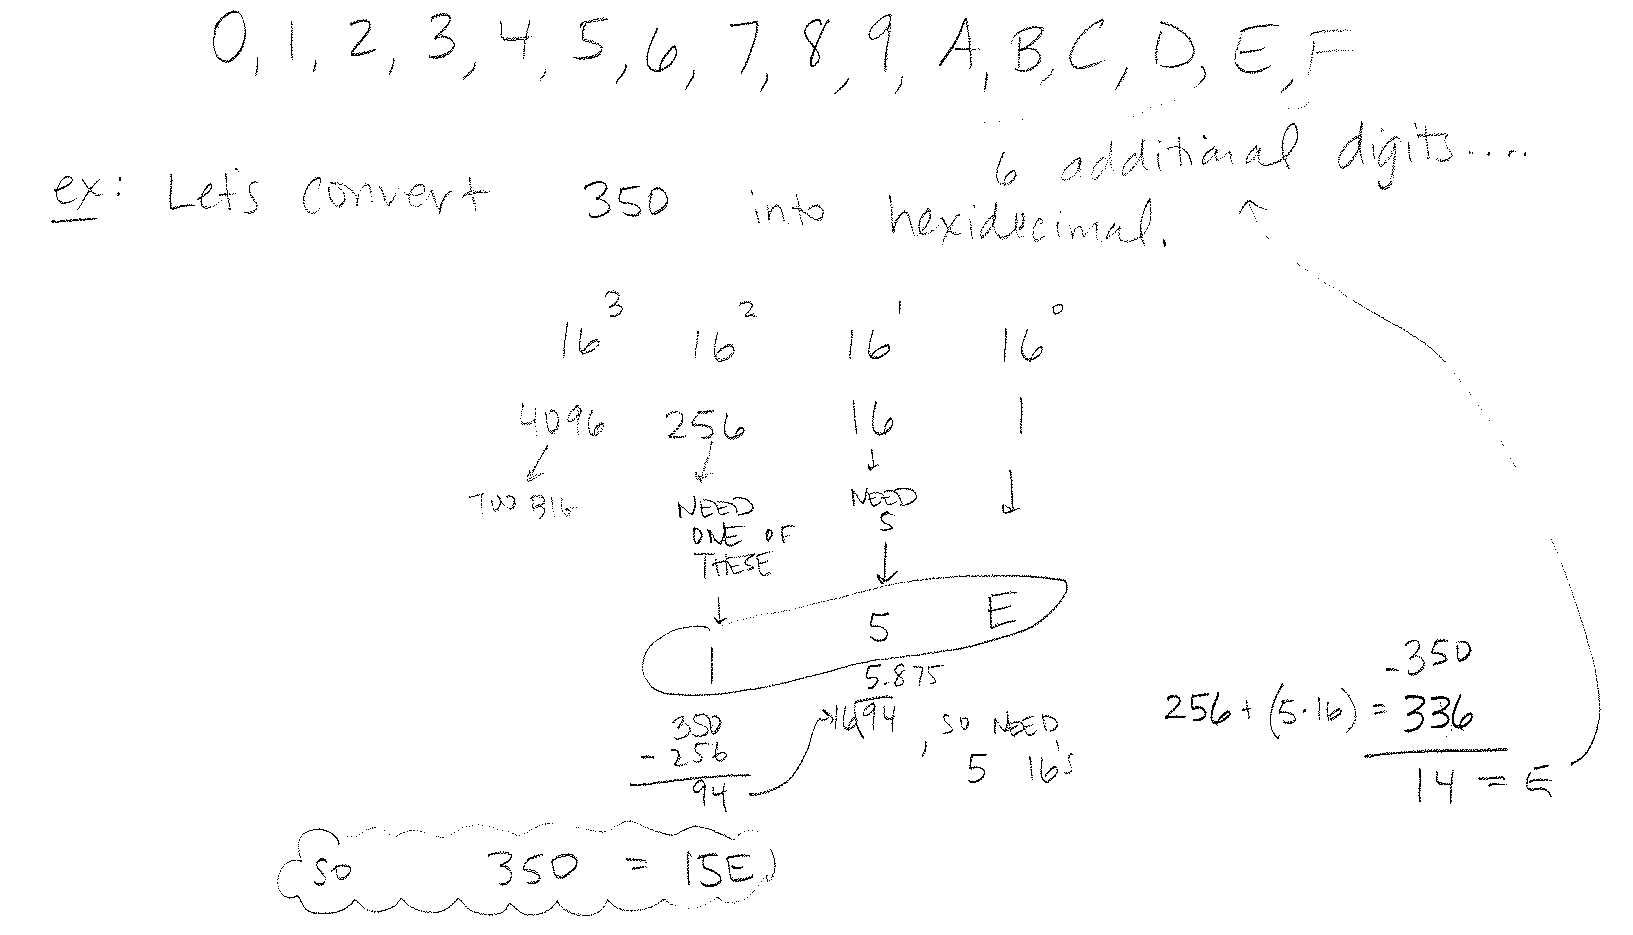 0, 1, 2, 3, 4, 5, 6, 7, 8, 9, A, B, C, D, E, F
6 additional digits....
ex: Let's convert 350 into hexidecimal.
16³ 16² 16¹ 16⁰
4096 256 16 1
TOO BIG
NEED
ONE OF
THESE
NEED
5
1 5 E
350
- 256
94
5.875
16)94
, SO NEED
5 16's
-350
256 + (5·16) = 336
14 = E
SO 350 = 15E